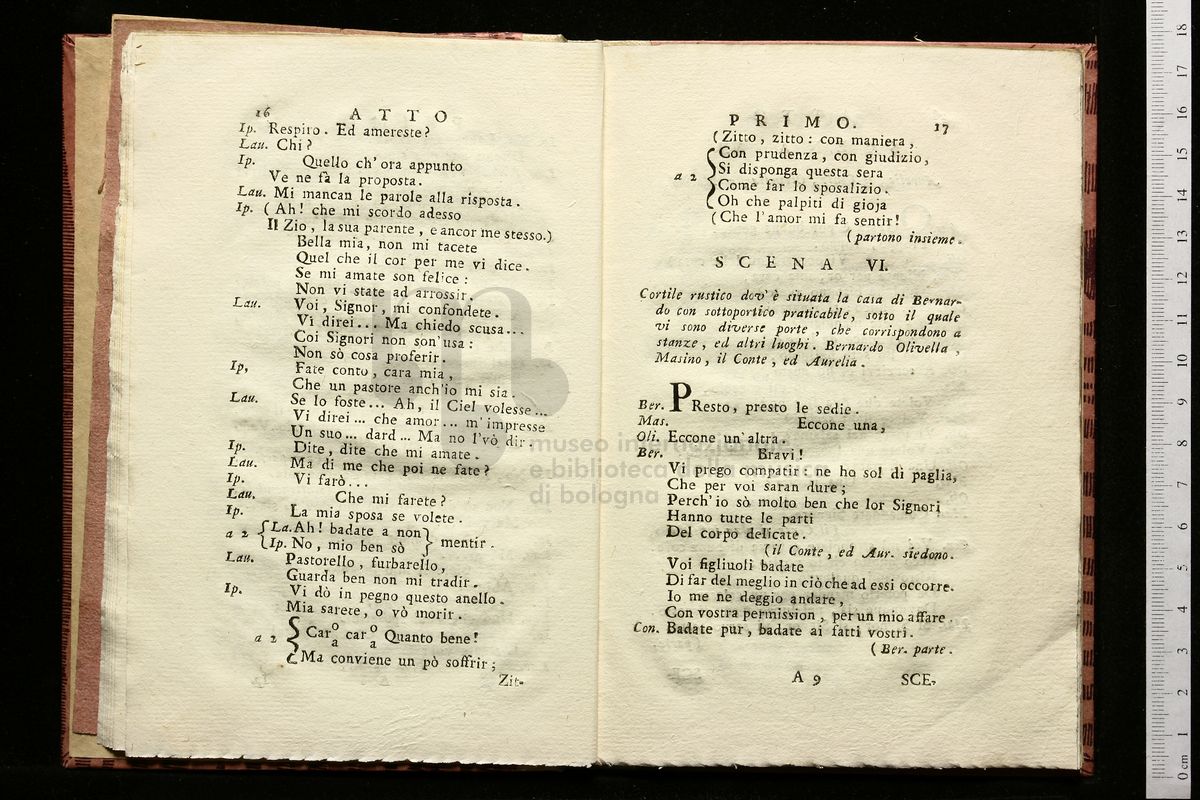 16 ATTO
Ip. Respiro. Ed amereste?
Lau. Chi?
Ip. Quello ch' ora appunto
Ve ne fà la proposta.
Lau. Mi mancan le parole alla risposta.
Ip. (Ah! che mi scordo adesso
Il Zio, la sua parente, e ancor me stesso.)
Bella mia, non mi tacete
Quel che il cor per me vi dice.
Se mi amate son felice:
Non vi state ad arrossir.
Lau. Voi, Signor, mi confondete.
Vi direi... Ma chiedo scusa...
Coi Signori non son' usa:
Non sò cosa proferir.
Ip, Fate conto, cara mia,
Che un pastore anch'io mi sia.
Lau. Se lo foste... Ah, il Ciel volesse...
Vi direi... che amor... m' impresse
Un suo... dard... Ma no l'vò dir.
Ip. Dite, dite che mi amate.
Lau. Ma di me che poi ne fate?
Ip. Vi farò...
Lau. Che mi farete?
Ip. La mia sposa se volete.
a 2 {La. Ah! badate a non} mentir.
{Ip. No, mio ben sò}
Lau. Pastorello, furbarello,
Guarda ben non mi tradir.
Ip. Vi dò in pegno questo anello.
Mia sarete, o vò morir.
a 2 { Car o/a car o/a Quanto bene!
Ma conviene un pò soffrir;
Zit-
PRIMO. 17
(Zitto, zitto: con maniera,
Con prudenza, con giudizio,
a 2 { Si disponga questa sera
Come far lo sposalizio.
Oh che palpiti di gioja
(Che l'amor mi fa sentir!
(partono insieme.
SCENA VI.
Cortile rustico dov' è situata la casa di Bernar-
do con sottoportico praticabile, sotto il quale
vi sono diverse porte, che corrispondono a
stanze, ed altri luoghi. Bernardo Olivella,
Masino, il Conte, ed Aurelia.
Ber. PResto, presto le sedie.
Mas. Eccone una,
Oli. Eccone un' altra.
Ber. Bravi!
Vi prego compatir: ne ho sol di paglia,
Che per voi saran dure;
Perch' io sò molto ben che lor Signori
Hanno tutte le parti
Del corpo delicate.
(il Conte, ed Aur. siedono.
Voi figliuoli badate
Di far del meglio in ciò che ad essi occorre.
Io me ne deggio andare,
Con vostra permission, per un mio affare.
Con. Badate pur, badate ai fatti vostri.
(Ber. parte.
A 9 SCE-
museo internazionale
e biblioteca della musica
di bologna
0 cm 1 2 3 4 5 6 7 8 9 10 11 12 13 14 15 16 17 18